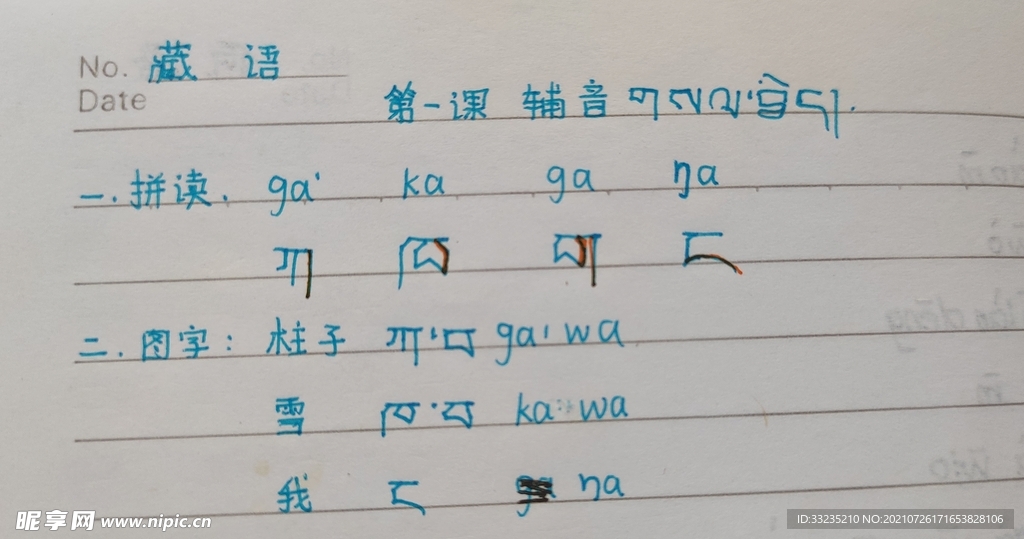 No. 藏 语
Date
第一课 辅音 གསལ་བྱེད།.
一.拼读. ga' ka ga ŋa
ཀ ཁ ག ང
二.图字: 柱子 ཀ་བ ga' wa
雪 ཁ་བ ka wa
我 ང ŋa
昵享网 www.nipic.cn
ID:33235210 NO:20210726171653828106